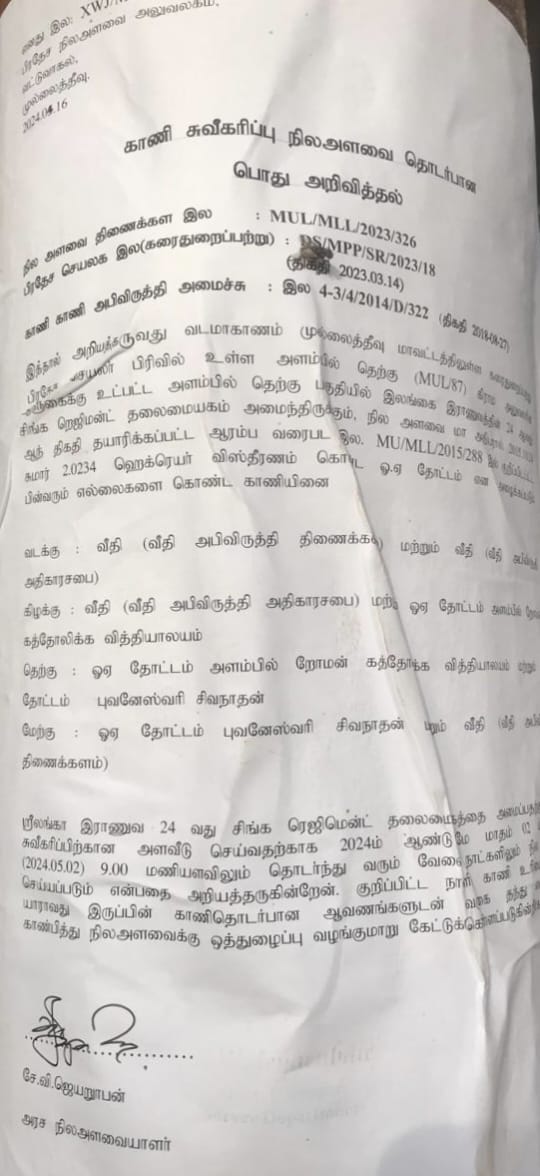 எனது இல: XWJ/
பிரதேச நிலஅளவை அலுவலகம்,
வட்டுவாகல்,
முல்லைத்தீவு.
2024.04.16
காணி சுவீகரிப்பு நிலஅளவை தொடர்பான
பொது அறிவித்தல்
நில அளவை திணைக்கள இல : MUL/MLL/2023/326
பிரதேச செயலக இல(கரைதுறைப்பற்று) : DS/MPP/SR/2023/18
(திகதி 2023.03.14)
காணி காணி அபிவிருத்தி அமைச்சு : இல 4-3/4/2014/D/322 (திகதி 2018-08-27)
இத்தால் அறியத்தருவது வடமாகாணம் முல்லைத்தீவு மாவட்டத்திலுள்ள
பிரதேச செயலர் பிரிவில் உள்ள அளம்பில் தெற்கு (MUL/87) கிராம
உட்பட்ட அளம்பில் தெற்கு பகுதியில் இலங்கை இராணுவத்தின் 24 ஆவது
சிங்க ரெஜிமென்ட் தலைமையகம் அமைந்திருக்கும், நில அளவை மா
ஆந் திகதி தயாரிக்கப்பட்ட ஆரம்ப வரைபட இல. MU/MLL/2015/288 இல்
சுமார் 2.0234 ஹெக்ரெயர் விஸ்தீரணம் கொண்ட ஓ.ஏ தோட்டம் என
பின்வரும் எல்லைகளை கொண்ட காணியினை
வடக்கு : வீதி (வீதி அபிவிருத்தி திணைக்க மற்றும் வீதி (வீதி
அதிகாரசபை)
கிழக்கு : வீதி (வீதி அபிவிருத்தி அதிகாரசபை) மற் ஓஏ தோட்டம் அளம்பில்
கத்தோலிக்க வித்தியாலயம்
தெற்கு : ஓஏ தோட்டம் அளம்பில் றோமன் கத்தோ க்க வித்தியாலயம் மற்றும்
தோட்டம் புவனேஸ்வரி சிவநாதன்
மேற்கு : ஓஏ தோட்டம் புவனேஸ்வரி சிவநாதன் றும் வீதி (வீதி
திணைக்களம்)
ஸ்ரீலங்கா இராணுவ 24 வது சிங்க ரெஜிமென்ட் தலைமையகத்தை
சுவீகரிப்பிற்கான அளவீடு செய்வதற்காக 2024ம் ஆண்டு மே மாதம் 02
(2024.05.02) 9.00 மணியளவிலும் தொடர்ந்து வரும் வேலைநாட்களிலும்
செய்யப்படும் என்பதை அறியத்தருகின்றேன். குறிப்பிட்ட நாளில் காணி
யாராவது இருப்பின் காணிதொடர்பான ஆவணங்களுடன் வருகை தந்து
காண்பித்து நிலஅளவைக்கு ஒத்துழைப்பு வழங்குமாறு
சே.வி.ஜெயறூபன்
அரச நிலஅளவையாளர்